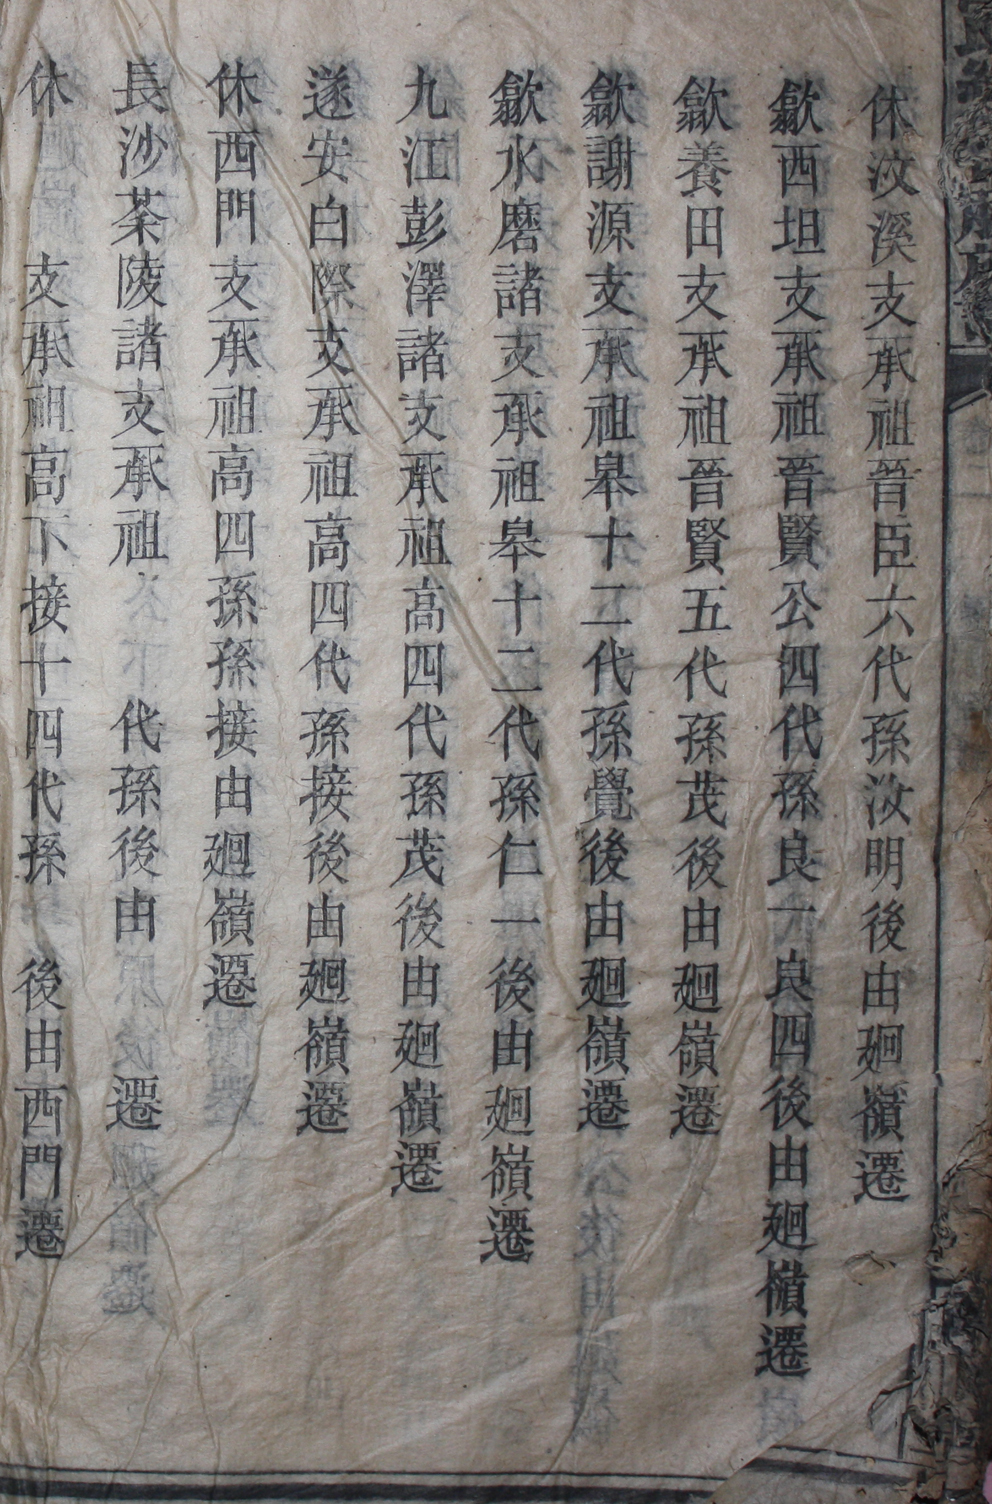 休汶溪支承祖晉臣六代孫汝明後由廻嶺遷
歙西坦支承祖晉賢公四代孫良一良四後由廻嶺遷
歙養田支承祖晉賢五代孫茂後由廻嶺遷
歙謝源支承祖皋十二代孫覺後由廻嶺遷
歙水磨諸支承祖皋十二代孫仁一後由廻嶺遷
九江彭澤諸支承祖高四代孫茂後由廻嶺遷
遂安白際支承祖高四代孫接後由廻嶺遷
休西門支承祖高四孫孫接由廻嶺遷
長沙荼陵諸支承祖 代孫後由 遷
休 支承祖高下接十四代孫 後由西門遷